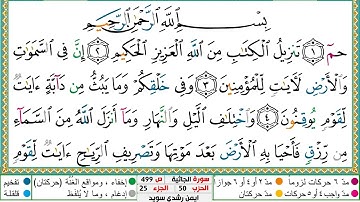 بِسْمِ اللَّهِ الرَّحْمَٰنِ الرَّحِيمِ
حمٓ ۝١ تَنزِيلُ الْكِتَابِ مِنَ اللَّهِ الْعَزِيزِ الْحَكِيمِ ۝٢ إِنَّ فِي السَّمَاوَاتِ
وَالْأَرْضِ لَآيَاتٍ لِّلْمُؤْمِنِينَ ۝٣ وَفِي خَلْقِكُمْ وَمَا يَبُثُّ مِن دَابَّةٍ ءَايَاتٌ
لِّقَوْمٍ يُوقِنُونَ ۝٤ وَاخْتِلَافِ اللَّيْلِ وَالنَّهَارِ وَمَا أَنزَلَ اللَّهُ مِنَ السَّمَاءِ
مِن رِّزْقٍ فَأَحْيَا بِهِ الْأَرْضَ بَعْدَ مَوْتِهَا وَتَصْرِيفِ الرِّيَاحِ ءَايَاتٌ لِّقَوْمٍ
مدّ ٦ حركات لزوماً مدّ ٢ أو ٤ أو ٦ جوازاً سورة الجاثية ص 499 إخفاء، ومواقع الغنّة (حركتان) تفخيم
مدّ واجب ٤ أو ٥ حركات مدّ حركتان الحزب 50 الجزء 25 إدغام، وما لا يُلفظ قلقلة
ايمن رشدي سويد